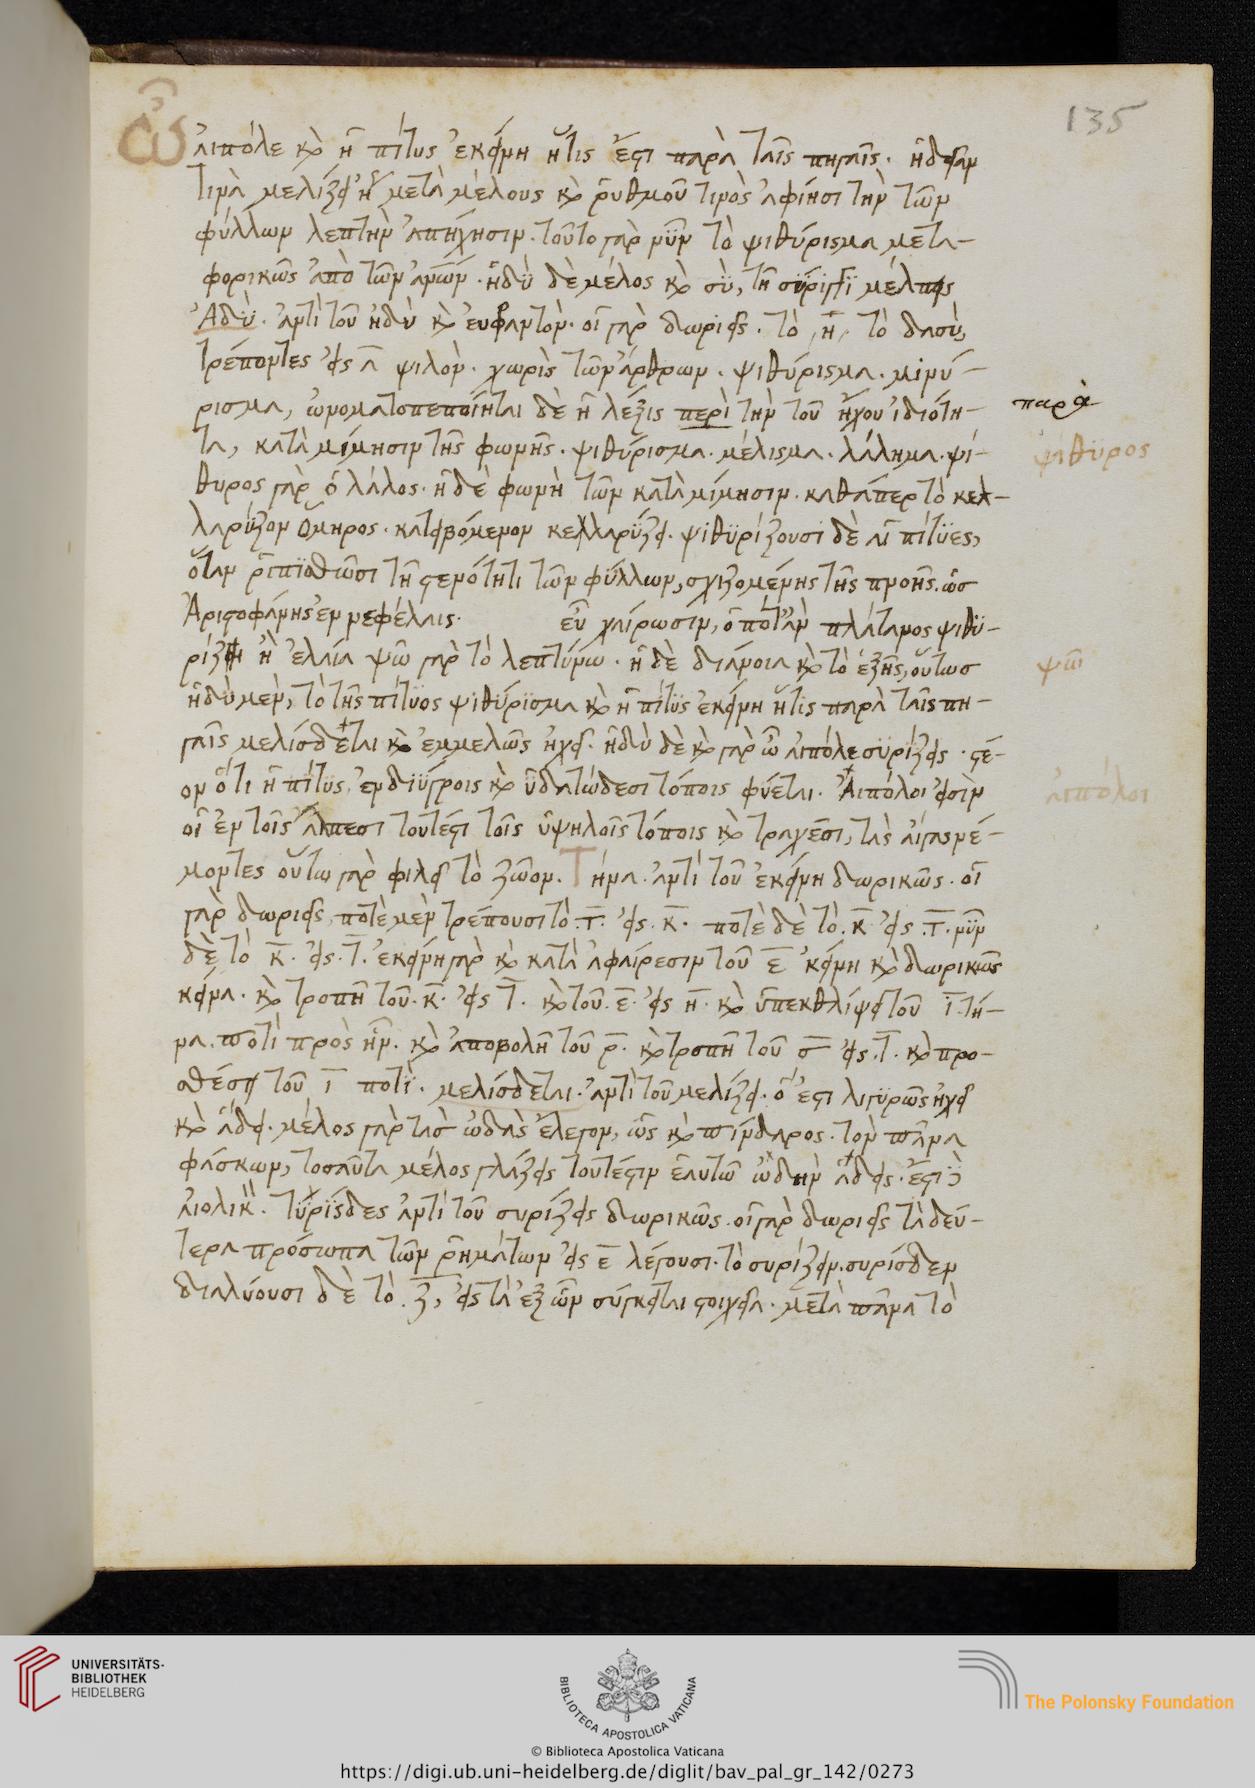 135
Ὦ αἰπόλε καὶ ἡ πίτυς ἐκείνη ἥτις ἐστὶ παρὰ ταῖς πηγαῖς. ἡδεῖαν
τινὰ μελίζει ἢ μετὰ μέλους καὶ ῥυθμοῦ τινὸς ἀφίησι τὴν τῶν
φύλλων λεπτὴν ἀπήχησιν. τοῦτο γὰρ νῦν τὸ ψιθύρισμα μετα-
φορικῶς ἀπὸ τῶν ἀνῶν. ἡδὺ δὲ μέλος καὶ σὺ, τῆ σύριγγι μέλπεις
Ἁδύ. ἀντὶ τοῦ ἡδὺ καὶ εὐφραντόν. οἱ γὰρ δωριεῖς. τὸ η τὸ δασὺ,
τρέποντες εἰς α ψιλόν. χωρὶς τῶν ἄρθρων. ψιθύρισμα. μινύ-
ρισμα, ὠνοματοπεποίηται δὲ ἡ λέξις περὶ τὴν τοῦ ἤχου ἰδιότη-
παρὰ
τα, κατὰ μίμησιν τῆς φωνῆς. ψιθύρισμα. μέλισμα. λάλημα. ψί-
ψίθυρος
θυρος γὰρ ὁ λάλος. ἡ δὲ φωνὴ τῶν κατὰ μίμησιν. καθάπερ τὸ κελ-
λαρύζον Ὅμηρος. κατειβόμενον κελλαρύζει. ψιθυρίζουσι δὲ αἱ πίτυες,
ὅταν ῥιπισθῶσι τῆ στενότητι τῶν φύλλων, σχιζομένης τῆς πνοῆς. ὡς
Ἀριστοφάνης ἐν νεφέλαις. εὖ χαίρωσιν, ὁπόταν πλάτανος ψιθυ-
ρίζη ἢ ἐλαία ψῶ γὰρ τὸ λεπτύνω. ἡ δὲ διάνοια καὶ τὸ ἑξῆς, οὕτως
ψῶ
ἡδὺ μὲν, τὸ τῆς πίτυος ψιθύρισμα καὶ ἡ πίτυς ἐκείνη ἥτις παρὰ ταῖς πη-
γαῖς μελίσδεται καὶ ἐμμελῶς ἠχεῖ. ἡδὺ δὲ καὶ γὰρ ὦ αἰπόλε συρίζεις. στέ-
ον ὅτι ἡ πίτυς, ἐν διύγροις καὶ ὑδατώδεσι τόποις φύεται. Αἰπόλοι εἰσὶν
αἰπόλοι
οἱ ἐν τοῖς ἄλπεσι τουτέστι τοῖς ὑψηλοῖς τόποις καὶ τραχέσι, τὰς αἶγας νέ-
μοντες οὕτω γὰρ φιλεῖ τὸ ζῶον. Τήνα. ἀντὶ τοῦ ἐκείνη δωρικῶς. οἱ
γὰρ δωριεῖς, ποτὲ μὲν τρέπουσι τὸ. τ. εἰς. κ. ποτὲ δὲ τὸ. κ εἰς. τ. νῦν
δὲ τὸ κ. εἰς. τ. ἐκείνη γὰρ καὶ κατὰ ἀφαίρεσιν τοῦ ε κείνη καὶ δωρικῶς
κείνα. καὶ τροπῆ τοῦ. κ. εἰς τ. καὶ τοῦ. ε. εἰς η. καὶ ὑπεκθλίψει τοῦ ι. τή-
να. ποτὶ πρὸς ἦν. καὶ ἀποβολῆ τοῦ ρ. καὶ τροπῆ τοῦ σ εἰς. τ. καὶ προ-
σθέσει τοῦ ι ποτί. μελίσδεται. ἀντὶ τοῦ μελίζει. ὅ ἐστι λιγυρῶς ἠχεῖ
καὶ ἄδει. μέλος γὰρ τὰς ὠδὰς ἔλεγον, ὡς καὶ πίνδαρος. τὸν πᾶνα
φάσκων, τοσαῦτα μέλος γλάζεις τουτέστιν ἑαυτῶ ὠδὴν ἄδεις. ἔστι
αἰολικ. τυρίσδες ἀντὶ τοῦ συρίζεις δωρικῶς. οἱ γὰρ δωριεῖς τὰ δεύ-
τερα πρόσωπα τῶν ῥημάτων εἰς ε λέγουσι. τὸ συρίζειν. συρίσδεν
διαλύουσι δὲ τὸ ζ, εἰς τὰ ἐξ ὧν σύγκειται στοιχεῖα. μετὰ πᾶνα τὸ
UNIVERSITÄTS-
BIBLIOTHEK
HEIDELBERG
BIBLIOTECA APOSTOLICA VATICANA
The Polonsky Foundation
© Biblioteca Apostolica Vaticana
https://digi.ub.uni-heidelberg.de/diglit/bav_pal_gr_142/0273